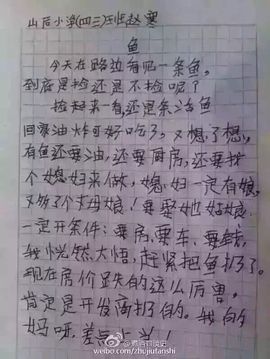 山后小学(四三)班赵寒
鱼
今天在路边看见一条鱼，
到底是捡还是不捡呢？
捡起来一看还是条活鱼
回家油炸可好吃了，又想了想，
有鱼还要油，还要厨房，还要找
个媳妇来做，媳妇一定有娘，
又够了个丈母娘！要娶她姑娘
一定开条件：要房、要车、要钱
我恍然大悟，赶紧把鱼扔了。
现在房价跌的这么厉害
肯定是开发商扔的。我的
妈呀，差点上当！
http://weibo.com/zhujiutanshi